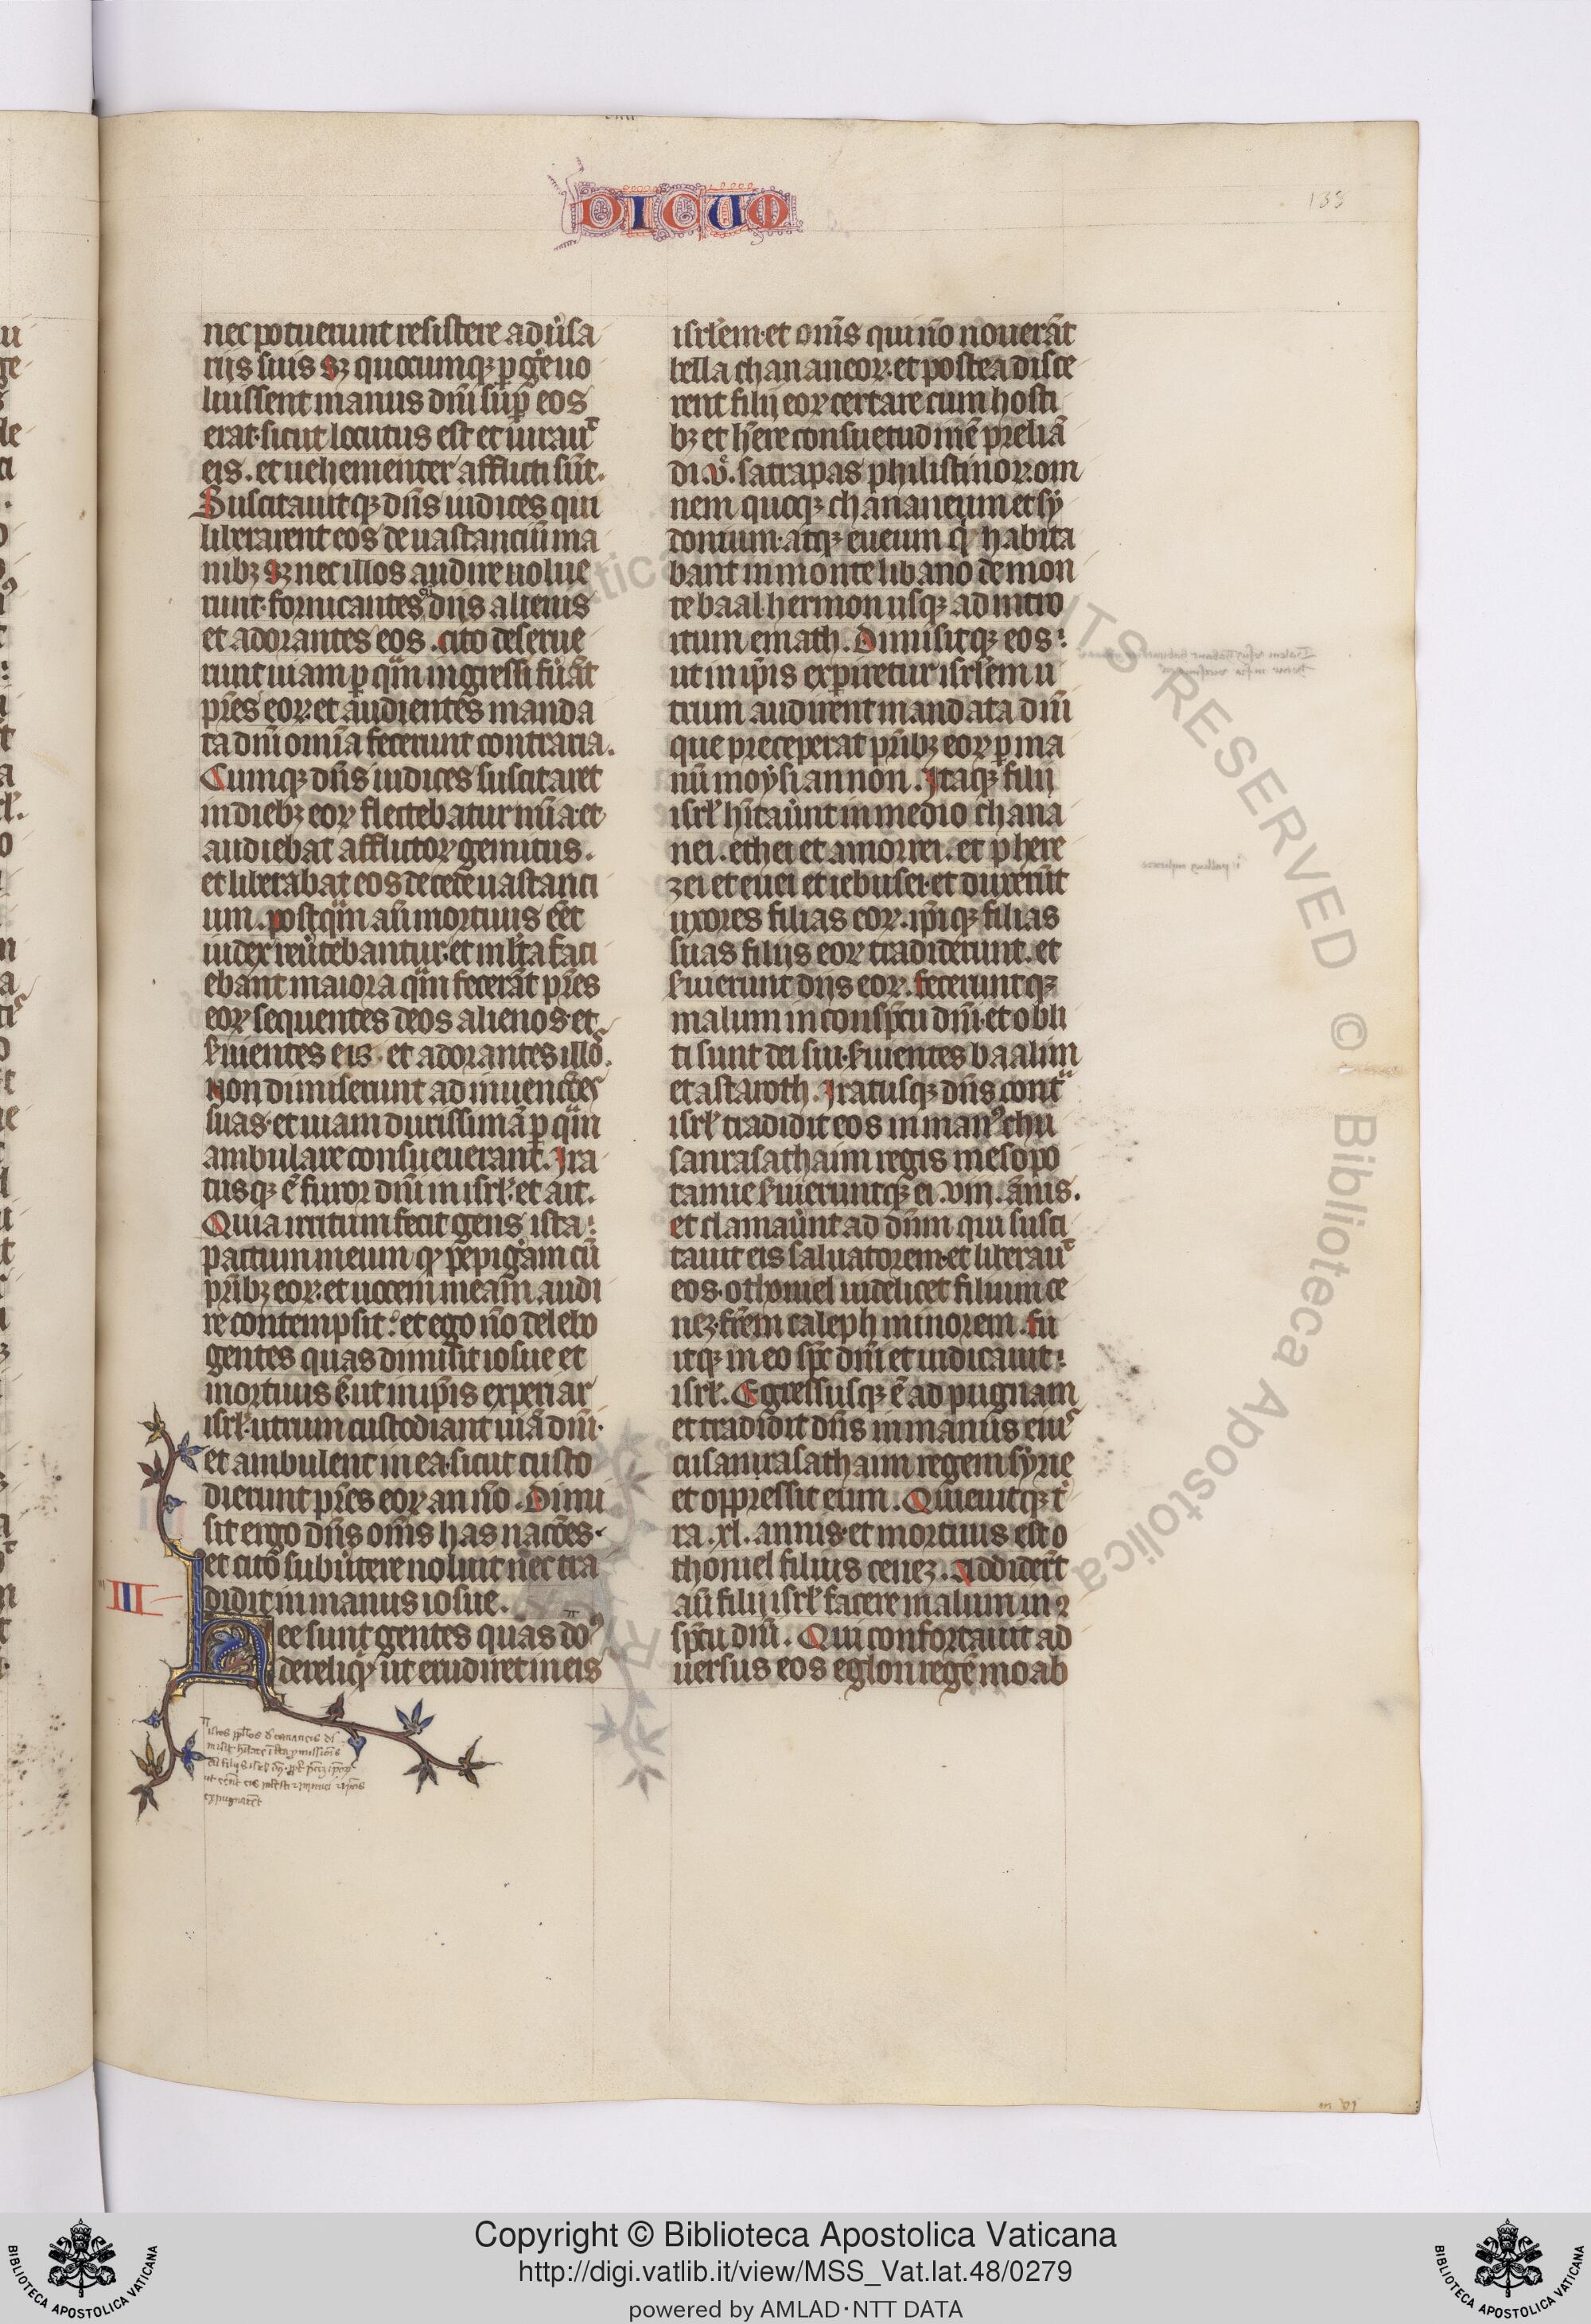 DICUM
133
nec potuerunt resistere adũsa
riis suis sꝫ quocumqꝫ ꝑge̾ uo
luissent manus dñi suꝑ eos
erat·sicut locutus est et iurauᷓ
eis. et uehementer afflicti sũt.
Suscitauitqꝫ dñs iudices qui
liberarent eos de uastanciũ ma
nibꝫ sꝫ nec illos audire uolue
runt·fornicantes cũ diis alienis
et adorantes eos. cito deserue
runt uiam ꝑ qͣm ingressi fuãt
pr̃es eoꝝ·et audientes manda
ta dñi omnia fecerunt contraria.
Cumqꝫ dñs iudices suscitaret
in diebꝫ eoꝝ flectebatur mĩa·et
audiebat afflictoꝝ gemitus.
et liberabat eos de cede uastanci
um. postqͣm aũ mortuus ẽet
iudex reũtebantur·et mĩta faci
ebant maiora qͣm fecerãt pr̃es
eoꝝ sequentes deos alienos·et
s̃uientes eis· et adorantes illoˢ.
Non dimiserunt adinuencões
suas·et uiam durissimã ꝑ qͣm
ambulare consueuerant. Ira
tusqꝫ ẽ furor dñi in isrł·et ait.
Quia irritum fecit gens ista:
pactum meum qđ pepigãm cũ
pr̃ibꝫ eoꝝ·et uocem meam audi
re contempsit: et ego nõ delebo
gentes quas dimisit iosue et
mortuus ẽ·ut in ip̃is experiar
isrł·utrum custodiant uiã dñi·
et ambulent in ea·sicut custo
dierunt pr̃es eoꝝ an nõ. Dimi
sit ergo dñs om̃s has nacões·
et cito subũtere noluit nec tra
didit in manus iosue.
III
Hee sunt gentes quas doꝰ
dereliqͥt ut erudiret in eis
isrłem·et om̃s qui nõ nouerãt
bella chananeoꝝ·et postea disce
rent filii eoꝝ certare cum hosti
bꝫ et h̃ere consuetudinẽ prelia᷈
di·vͦ. satrapas philistinoꝝ·om
nem quoqꝫ chananeum et sy
donium·atqꝫ eueum qͥ habita
bant in monte libano de mon
te baal hermon usqꝫ ad intro
itum emath. Dimisitqꝫ eos:
ut in ip̃is experiretur isrłem u
trum audirent mandata dñi
que preceperat pr̃ibꝫ eoꝝ ꝑ ma
nũ moysi an non. Itaqꝫ filii
isrł hĩtauũt in medio chana
nei. ethei et amorrei. et phere
zei et euei et iebusei·et duxerũt
uxores filias eoꝝ. ip̃iqꝫ filias
suas filiis eoꝝ tradiderunt. et
s̃uierunt diis eoꝝ. feceruntqꝫ
malum in conspc̃u dñi·et obli
ti sunt dei sui·s̃uientes baalim
et astaroth. Iratusqꝫ dñs contͣ
isrł tradidit eos in manꝰ chu
sanrasathaim regis mesopo
tamie s̃uieruntqꝫ ei .viii. ãnis.
et clamaũnt ad dñm qui susci
tauit eis saluatorem·et liberauᷓ
eos·othoniel uidelicet filium ce
nez·fr̃em caleph minorem. fu
itqꝫ in eo spc̃ dñi et iudicauit:
isrł. Egressusqꝫ ẽ ad pugnam
et tradidit dñs in manus eiuˢ
cusanrasathaim regem syrie
et oppressit eum. Quieuitqꝫ tͤ
ra .xl. annis·et mortuus est o
thoniel filius cenez. Addider̃t
aũ filii isrł facere malum in ꝯ
spc̃u dñi. Qui confortauit ad
uersus eos eglon regẽ moab
Copyright © Biblioteca Apostolica Vaticana
http://digi.vatlib.it/view/MSS_Vat.lat.48/0279
powered by AMLAD·NTT DATA
BIBLIOTECA APOSTOLICA VATICANA
BIBLIOTECA APOSTOLICA VATICANA